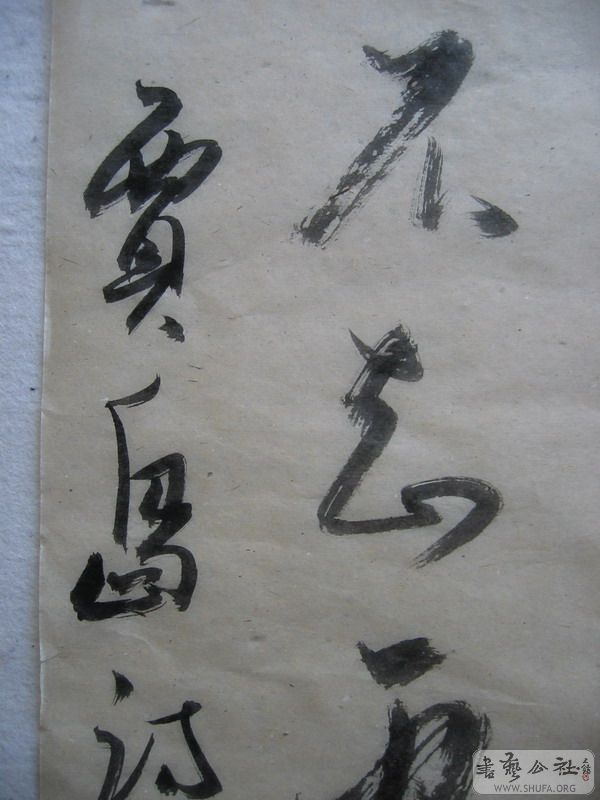 不知
賈島詩
書藝公社
WWW.SHUFA.ORG